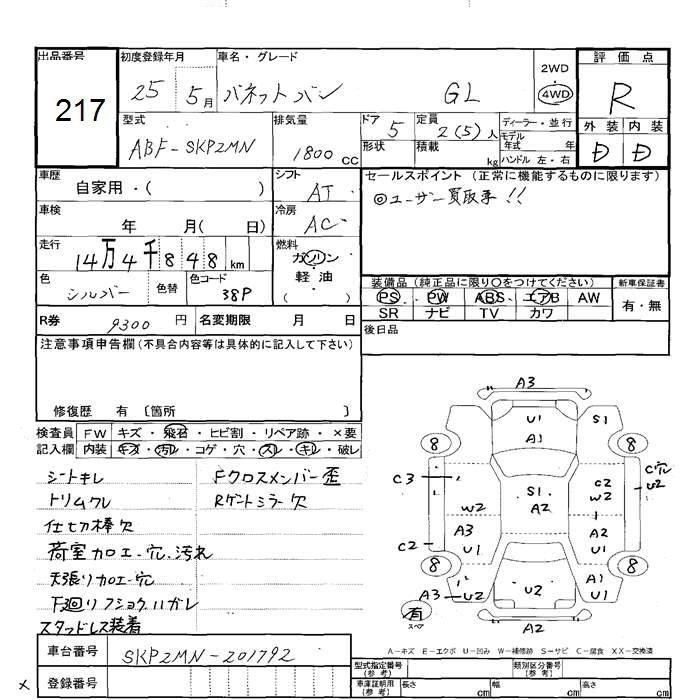 出品番号
217
初度登録年月
25 5月
車名・グレード
バネットバン GL
2WD
4WD
評価点
R
外装 内装
D D
型式
ABF-SKP2MN
排気量
1800 cc
ドア 5
形状
定員 2(5)人
積載 kg
ディーラー・並行
モデル年式 年
ハンドル 左・右
車歴
自家用・( )
シフト
AT
車検
年 月( 日)
冷房
AC
走行
14万4千848 km
燃料
ガソリン
軽油
( )
色
シルバー
色替
色コード
38P
セールスポイント (正常に機能するものに限ります)
◎ユーザー買取車!!
装備品 (純正品に限り〇をつけてください)
PS PW ABS エアB AW
SR ナビ TV カワ
新車保証書
有・無
R券 9300 円
名変期限 月 日
後日品
注意事項申告欄 (不具合内容等は具体的に記入して下さい)
修復歴 有 〔箇所 〕
検査員記入欄
FW キズ・飛石・ヒビ割・リペア跡・×要
内装 キズ・汚レ・コゲ・穴・スレ・キレ・破レ
シートキレ
トリムワレ
仕切棒欠
荷室カロエ・穴、汚れ
天張りカロエ・穴
下廻りフショク、ハガレ
スタッドレス装着
Fクロスメンバー歪
Rゲートミラー欠
A3
U1
A1
S1
8 8
C3
W2
S1
A2
C2
W2
C穴
U2
A3
U1
A2
U1
C2
8 8
A3 U2
U2
A1
U1
有
スペア
A2
A-キズ E-エクボ U-凹み W-補修跡 S-サビ C-腐食 XX-交換済
車台番号
SKP2MN-201792
× 登録番号
型式指定番号
(参考)
類別区分番号
(参考)
車庫証明用
(参考)
長さ cm 幅 cm 高さ cm